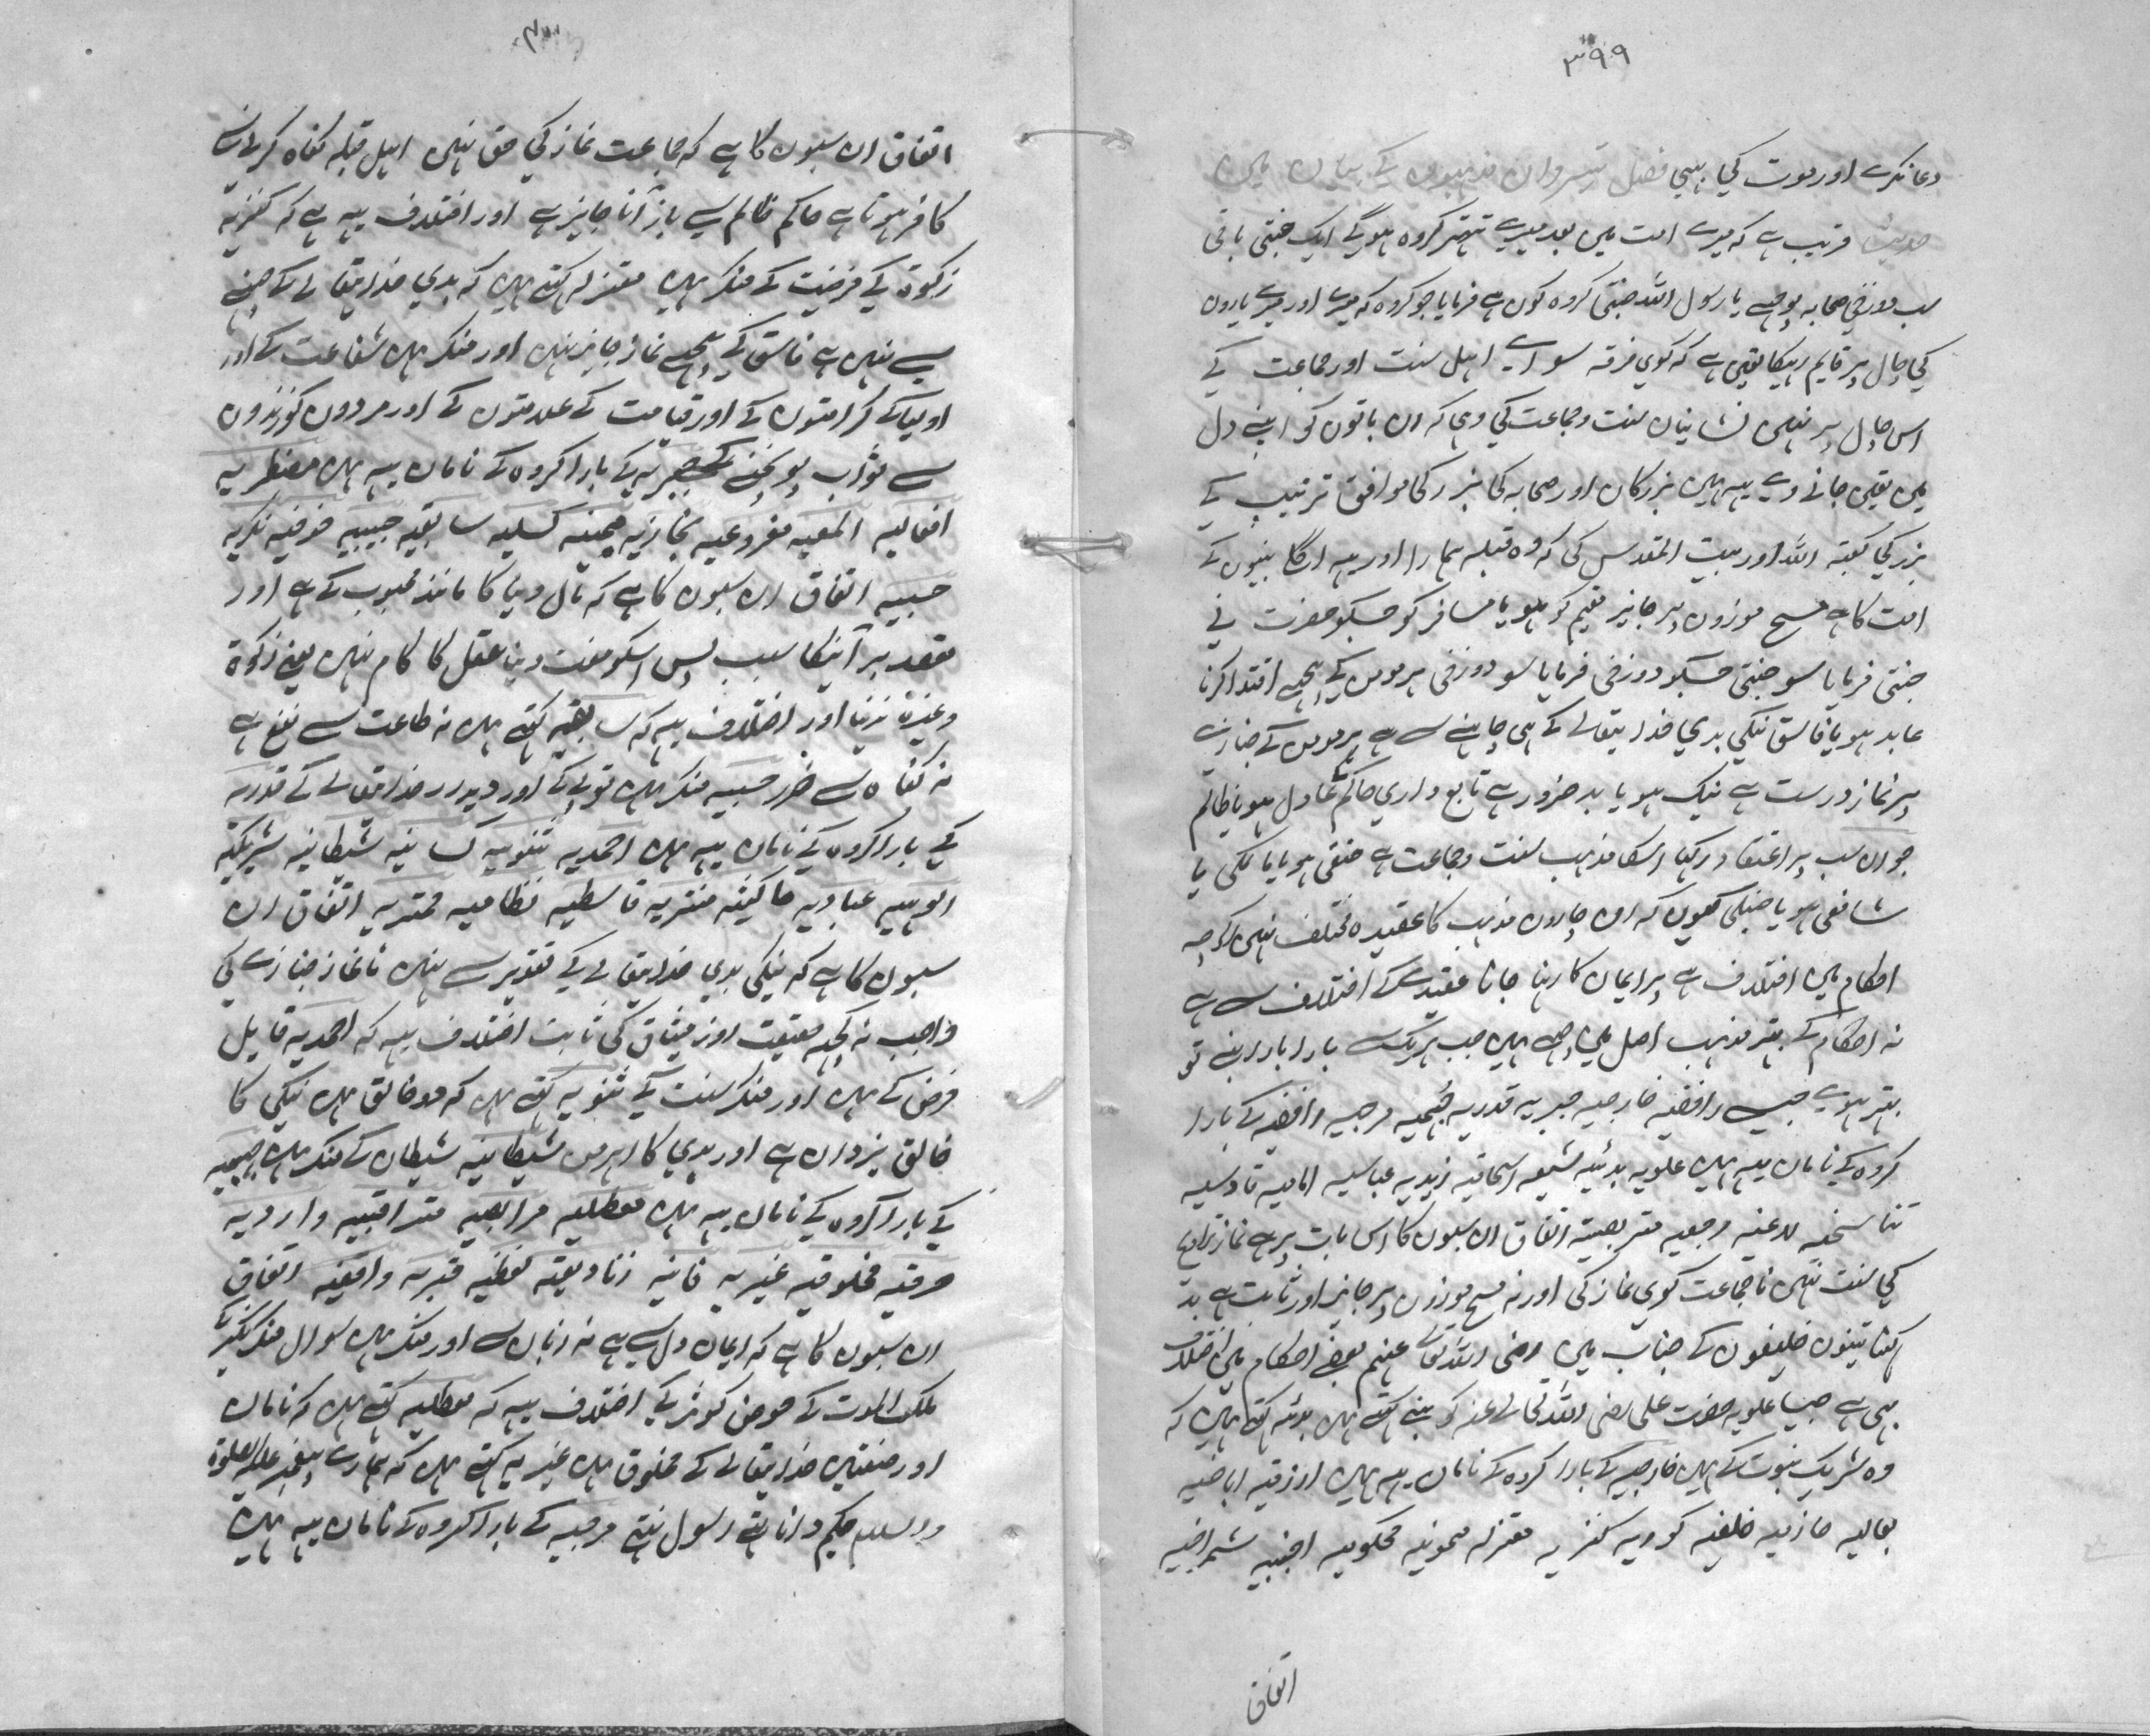 ۳۹۹
دعا نکرے اور موت کی بہی فصل تیسروان مذہبون کے بیان مین
حدیث قریب ہے کہ میرے امت مین بعد میرے تہتر کروہ ہوگے ایک جنتی باقی
سب دوزخی صحابہ پوچہے یا رسول اللہ جنتی کروہ کون ہے فرمایا جو کروہ کہ میرے اور میرے یارون
کی چال پر قایم رہیکا یقین ہے کہ کوی فرقہ سواے اہل سنت اور جماعت کے
اس چال پر نہین نشانیان سنت و جماعت کی وہی کہ ان باتون کو اپنے دل
مین یقین جانے وے یہہ ہین بزرکان اور صحابہ کا بزرکی موافق ترتیب کے
بزرکی کعبتہ اللہ اور بیت المقدس کی کہ وہ قبلہ ہمارا اور یہہ اگلا نبیون کے
امت کا ہے مسح موزون پر جایز مقیم کو ہو یا مسافر کو جسکو حضرت نے
جنتی فرمایا سو جنتی جسکو دوزخی فرمایا سو دوزخی ہر مومن کے پیچہے اقتدا کرنا
عابد ہو یا فاسق نیکی بدی خدا یتعالے کے ہی چاہنے سے ہے ہر مومن کے جنازے
پر نماز درست ہے نیک ہو یا بد ضرور ہے تابعداری حاکم عادل ہو یا ظالم
جو ان سب پر اعتقاد رکہا اسکا مذہب سنت و جماعت ہے حنفی ہو یا مالکی یا
شافعی ہو یا حنبلی کیون کہ ان چارون مذہب کا عقیدہ مختلف نہین اکرچہ
احکام مین اختلاف ہے پر ایمان کا رہنا جانا عقیدے کے اختلاف سے ہے
نہ احکام کے بہتر مذہب اصل مین چہے ہین جب ہریک سے بارا بارا بنے تو
بہتر ہوے جیسے رافضیہ خارجیہ جبریہ قدریہ جہیمیہ مرجیہ رافضیہ کے بارا
کروہ کے نامان یہہ ہین علویہ بدئیہ شیعہ اسحاقیہ زیدیہ عباسیہ امامیہ نادسیہ
تناسخیہ لاعنیہ رجعیہ متربصیہ اتفاق ان سبون کا اس بات پر ہے نماز تراویح
کی سنت نہین نا جماعت کوی نماز کی اور نہ مسح موزون پر جایز اور ثابت ہے بد
کہنا تینون خلیفون کے جناب مین رضی اللہ تعالے عنہم بعضے احکام مین اختلاف
بہی ہے جیسا علویہ حضرت علی رضی اللہ تعالے عنہ کو نبی کہتے ہین بدئیہ کہتے ہین کہ
وہ شریک نبوت کے ہین خارجیہ کے بارا کروہ کے نامان یہہ ہین ازرقیہ اباضیہ
بعالیہ حازمیہ خلفیہ کوریہ کنزیہ معتزلہ میمونیہ محکومیہ اخنسیہ شمراخیہ
اتفاق
اتفاق ان سبون کا ہے کہ جماعت نماز کی حق نہین اہل قبلہ کناہ کرنے سے
کافر ہوتا ہے حاکم ظالم سے باز آنا جایز ہے اور اختلاف یہہ ہے کہ کنزیہ
زکوۃ کے فرضیت کے منکر ہین معتزلہ کہتے ہین کہ بدی خدا یتعالے کے چاہنے
سے نہین ہے فاسق کے پیچہے نماز جایز نہین اور منکر ہین شفاعت کے اور
اولیا کے کرامتون کے اور قیامت کے علامتون کے اور مردون کو زندون
سے ثواب پہونچنے کے جبریہ کے بارا کروہ کے نامان یہہ ہین مضطریہ
افعالیہ المعیہ مفروغیہ نجازیہ کسلیہ سابقیہ حبیبیہ خوفیہ فکریہ
حسبیہ اتفاق ان سبون کا ہے کہ مال دنیا کا مانند محبوب کے ہے اور
سبب پس اسکو مفت دینا عقل کا کام نہین یعنے زکوۃ
وغیرہ ندینا اور اختلاف یہہ کہ سابقیہ کہتے ہین نہ طاعت سے نفع ہے
نہ کناہ سے ضرر حسبیہ منکر ہین توبے کے اور دیدار خدا یتعالے کے قدریہ
کے بارا کروہ کے نامان یہہ ہین احمدیہ ثنویہ کسانیہ شیطانیہ شریکیہ
قاسطیہ نظامیہ اتفاق ان
سبون کا ہے کہ نیکی بدی خدا یتعالے کے تقدیر سے نہین نا نماز جنازے کی
واجب نہ کچہہ حقیقت اوز میثاق کی ثابت اختلاف یہہ کہ احمدیہ قایل
فرض کے ہین اور منکر سنت کے ثنویہ کہتے ہین کہ دو خالق ہین نیکی کا
خالق یزدان ہے اور بدی کا اہرمن شیطانیہ شیطان کے منکر ہین جہیمیہ
کے بارا کروہ کے نامان یہہ ہین معطلیہ مرابصیہ متراقبیہ واردیہ
حرقیہ مخلوقیہ غیریہ فانیہ زنادیقیہ لفظیہ قبریہ واقفیہ اتفاق
ان سبون کا ہے کہ ایمان دل سے ہے نہ زبان سے اور منکر ہین سوال منکر نکیر کے
ملک الموت کے حوض کوثر کے اختلاف یہہ کہ معطلیہ کہتے ہین کہ نامان
اور صفتین خدا یتعالے کے مخلوق ہین غیریہ کہتے ہین کہ ہمارے پیغمبر علیہ الصلوۃ
والسلام حکیم دانا تہے رسول نتہے مرجیہ کے بارا کروہ کے نامان یہہ ہین